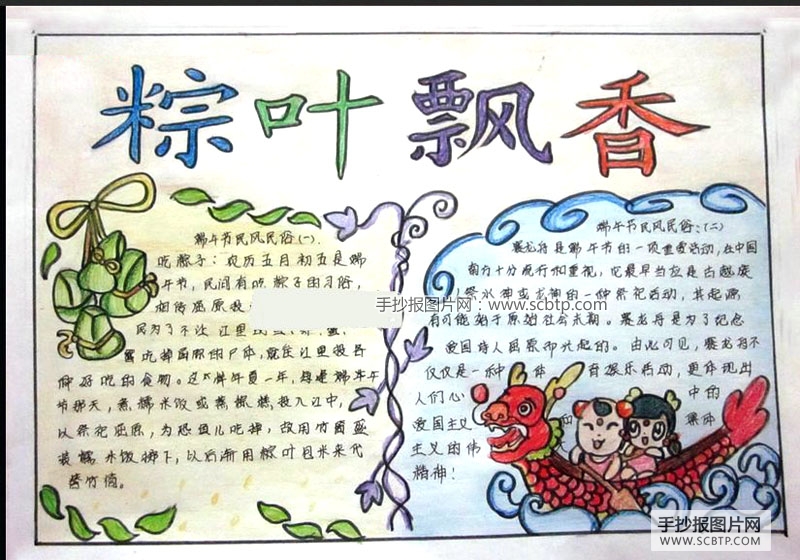 粽叶飘香
端午节民风民俗(一)
吃粽子：农历五月初五是端
午节，民间有吃粽子的习俗，
相传屈原投
民为了不让江里的
吃掉屈原的尸体，就往江里投各
种好吃的食物。
节那天，
以祭祀屈原，为恐鱼儿吃掉，故用竹筒盛
装糯米饭掷下，以后渐用粽叶包米来代
替竹筒。
端午节民风民俗：(二)
赛龙舟是端午节的一项重要活动，在中国
南方十分流行和重视，它最早当应是古越族
祭水神或龙神的一种祭祀活动，其起源
有可能始于原始社会末期。赛龙舟是为了纪念
爱国诗人屈原而兴起的。由此可见，赛龙舟不
仅仅是一种体育娱乐活动，更体现出
人们心中的
爱国主义和集体
主义的伟
精神！
手抄报图片网：www.scbtp.com
手抄报图片网
WWW.SCBTP.COM